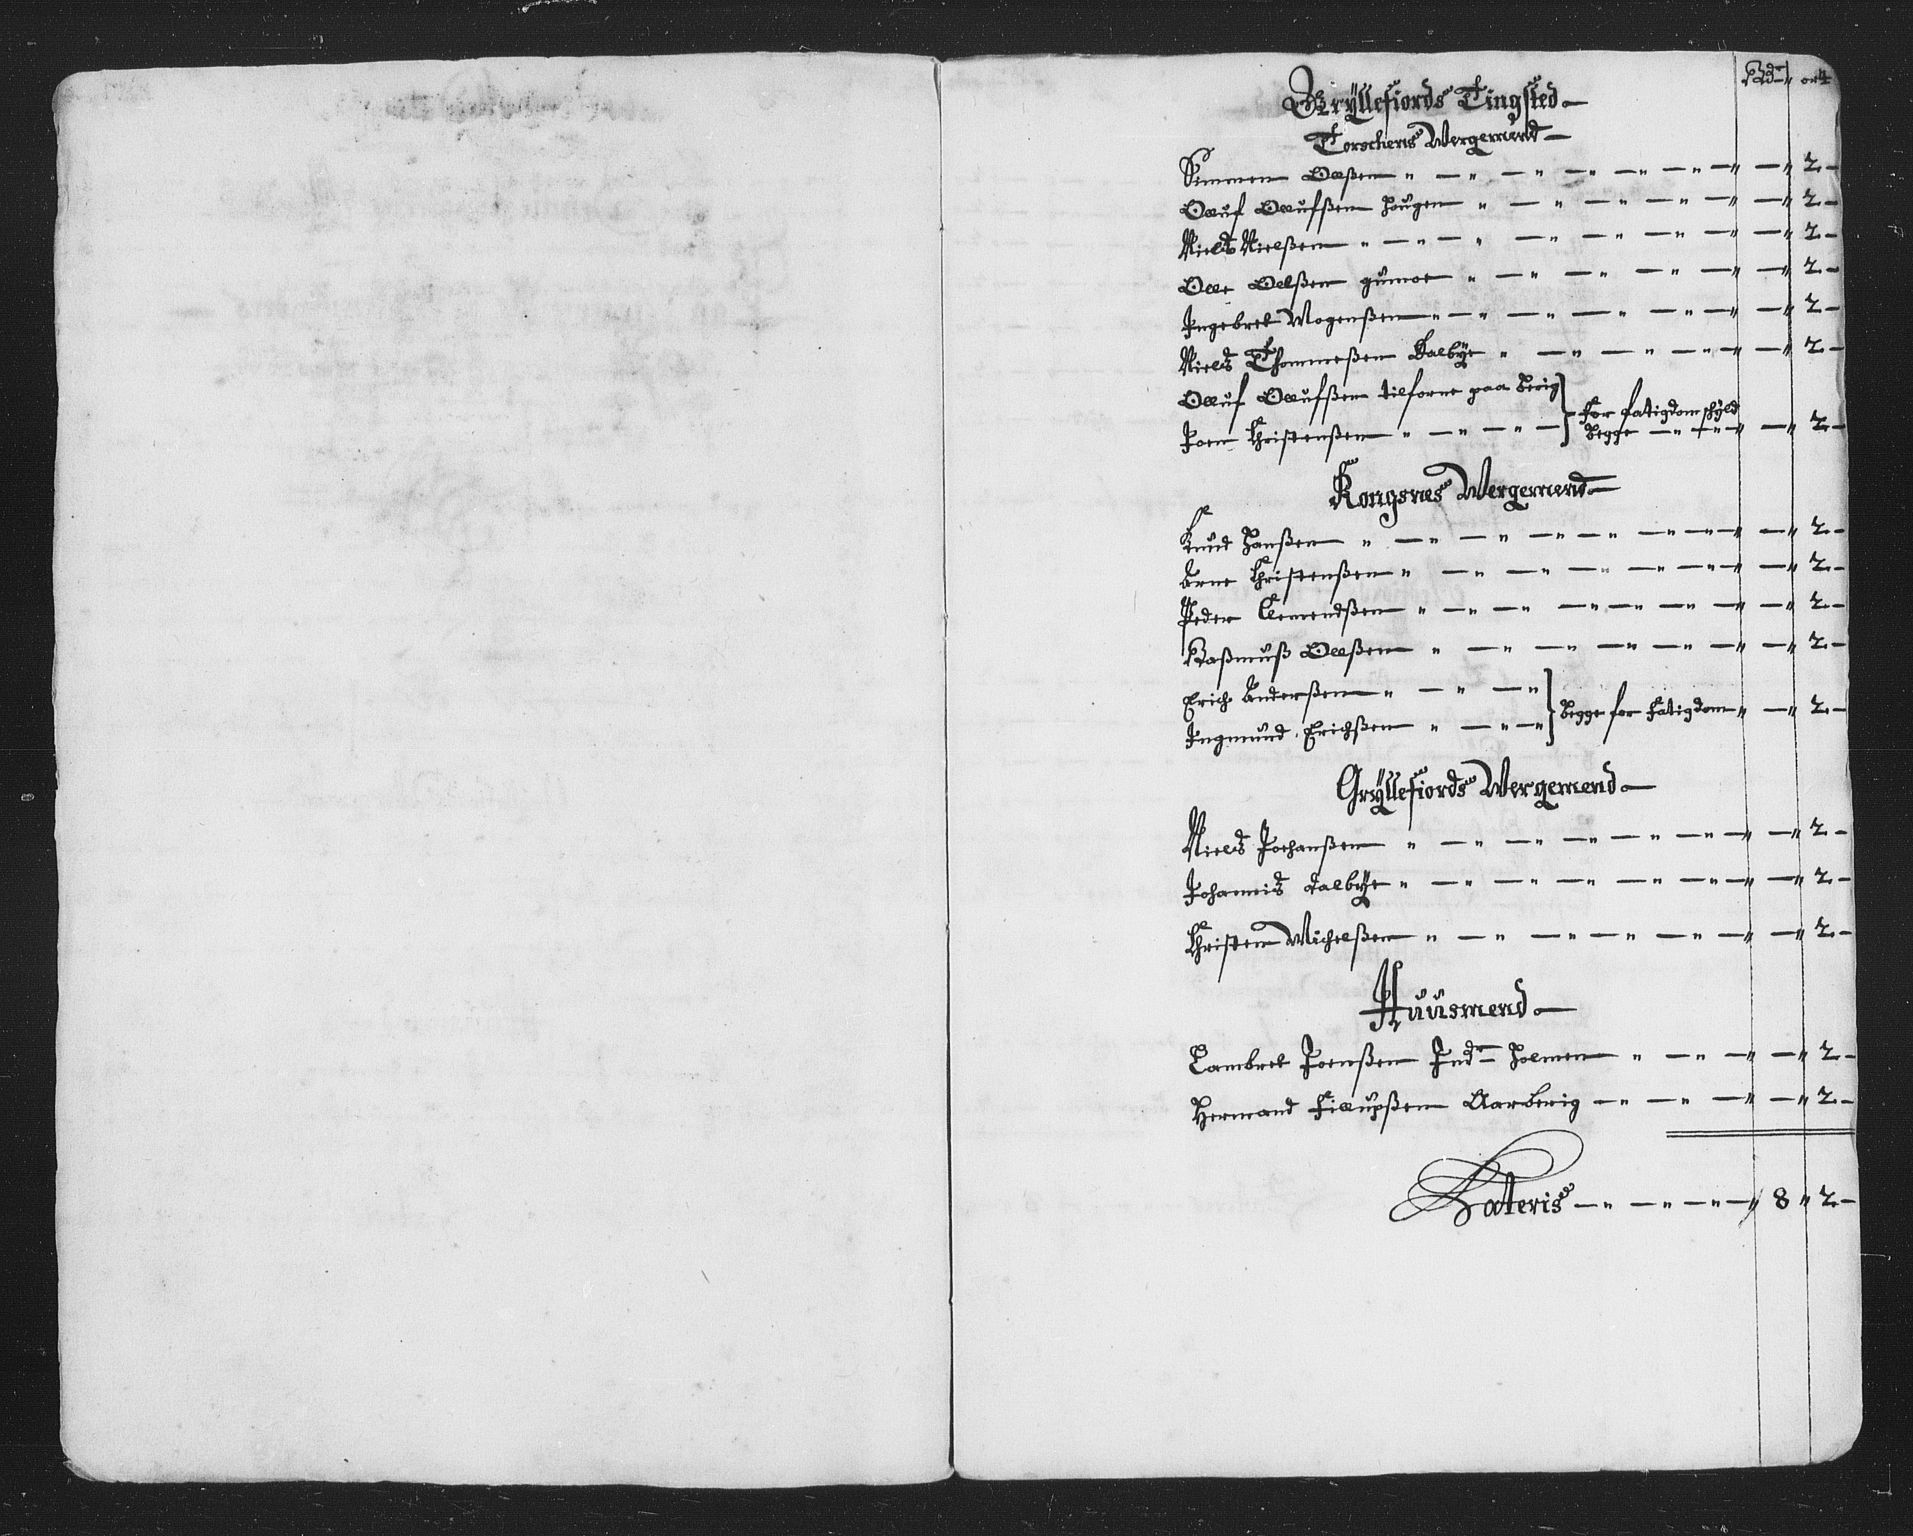 Rdr ort
Gryllefiords Tingsted
Torschens Wergemend
Simmen Olßen 2
Oluf Olufßen Hougen 2
Niels Nielßen 2
Olle Olßen 2
Ingebret Mogenßen 2
Niels Thommeßen Dalbye 2
Oluf Olufßen tilforne paa Berig
Joen Christenßen
For fatigdom schyld
Begge 2
Kongsnes Wergemend
Knud Hanßen 2
Arne Christenßen 2
Peder Clemendßen 2
Raßmuß Olßen 2
Erich Anderßen
Ingmund Erichßen
Begge for Fatigdom 2
Gryllefiords Wergemend
Niels Johanßen 2
Johannis Dalbye 2
Christen Michelßen 2
Huusmend
Lambret Joenßen Indr Holmen 2
Hermand Fillupßen Aarberig 2
Lateris 8 2